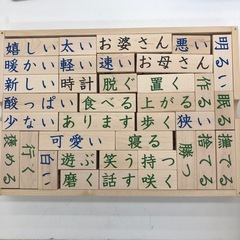 嬉しい 太い お婆さん 悪い
暖かい 軽い 速い お母さん
新しい 時計 脱ぐ 置く
酸っぱい 食べる 上がる
少ない あります 歩く 狭い
可愛い 寝る
遊ぶ 笑う 持つ
磨く 話す 咲く
明るい
作る
眠る
捨てる
撫でる
勝つ
褒める
行く
白い